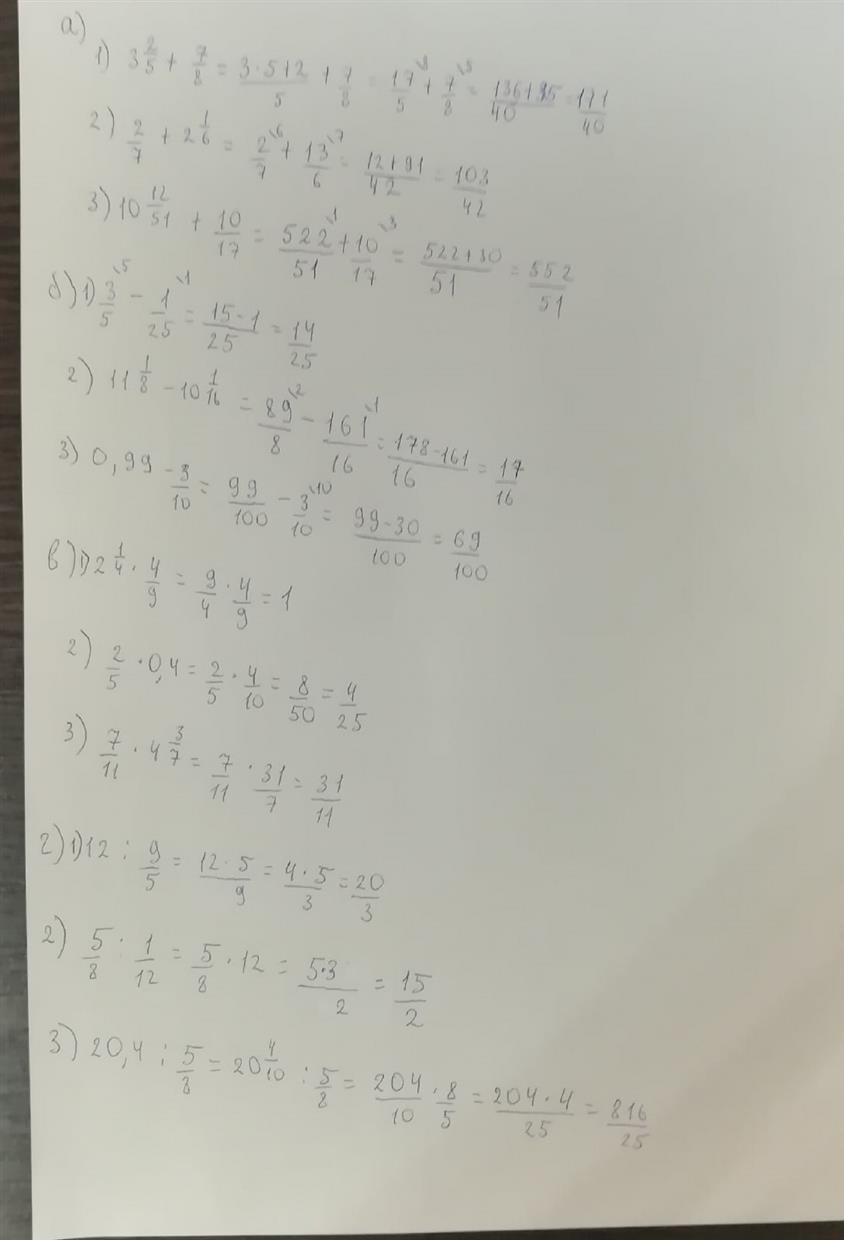 а)
1) 3 2/5 + 7/8 = (3·5+2)/5 + 7/8 = 17/5 + 7/8 = (136+35)/40 = 171/40
2) 2/7 + 2 1/6 = 2\6/7 + 13\7/6 = (12+91)/42 = 103/42
3) 10 12/51 + 10/17 = 522\1/51 + 10\3/17 = (522+30)/51 = 552/51
б) 1) 3\5/5 - 1\1/25 = (15-1)/25 = 14/25
2) 11 1/8 - 10 1/16 = 89\2/8 - 161\1/16 = (178-161)/16 = 17/16
3) 0,99 - 3/10 = 99/100 - 3\10/10 = (99-30)/100 = 69/100
в) 1) 2 1/4 · 4/9 = 9/4 · 4/9 = 1
2) 2/5 · 0,4 = 2/5 · 4/10 = 8/50 = 4/25
3) 7/11 · 4 3/7 = 7/11 · 31/7 = 31/11
г) 1) 12 : 9/5 = (12·5)/9 = (4·5)/3 = 20/3
2) 5/8 : 1/12 = 5/8 · 12 = (5·3)/2 = 15/2
3) 20,4 : 5/8 = 20 4/10 : 5/8 = 204/10 · 8/5 = (204·4)/25 = 816/25